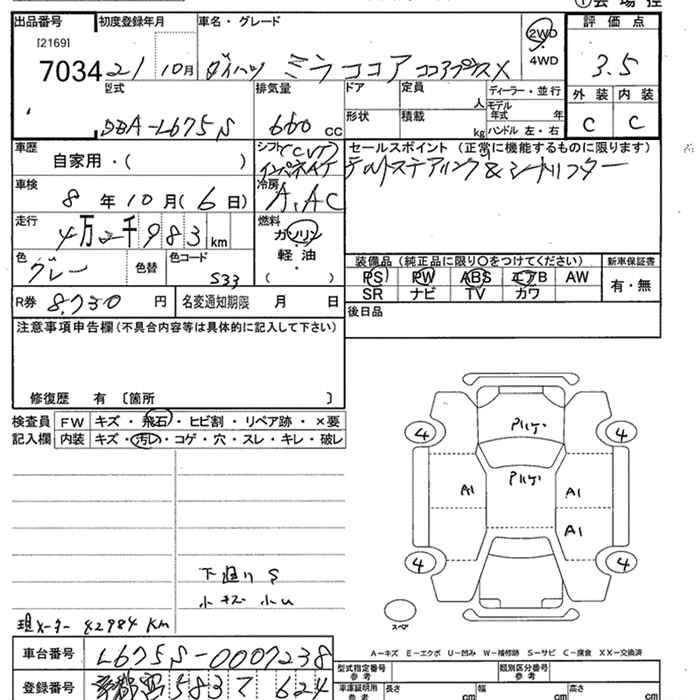 ①会場控
出品番号 初度登録年月 車名・グレード 2WD・4WD 評価点
[2169]
7034 21 10月 ダイハツ ミラココア ココアプラスX 3.5
型式 排気量 ドア 定員 人 ディーラー・並行 外装 内装
DBA-L675S 660cc 形状 積載 kg モデル年式 年 ハンドル 左・右 C C
車歴 自家用・( ) シフト(CVT) インパネAT セールスポイント (正常に機能するものに限ります)
チルトステアリング & シートリフター
車検 8年10月(6日) 冷房 A.AC
走行 4万2千983km 燃料 ガソリン 軽油・( )
色 グレー 色替 色コード S33
装備品 (純正品に限り○をつけてください) 新車保証書
PS PW ABS エアB AW 有・無
SR ナビ TV カワ
R券 8,730円 名変通知期限 月 日
後日品
注意事項申告欄(不具合内容等は具体的に記入して下さい)
修復歴 有 〔箇所 〕
検査員 FW キズ・飛石・ヒビ割・リペア跡・×要
記入欄 内装 キズ・汚レ・コゲ・穴・スレ・キレ・破レ
4 4
A1 A1
A1
4 4
下廻りS
小キズ 小U
現メーター 42984km
スペア
A-キズ E-エクボ U-凹み W-補修跡 S-サビ C-腐食 XX-交換済
車台番号 L675S-0007238
型式指定番号 参考 類別区分番号 参考
登録番号 583 624
車庫証明用 参考 長さ cm 幅 cm 高さ cm